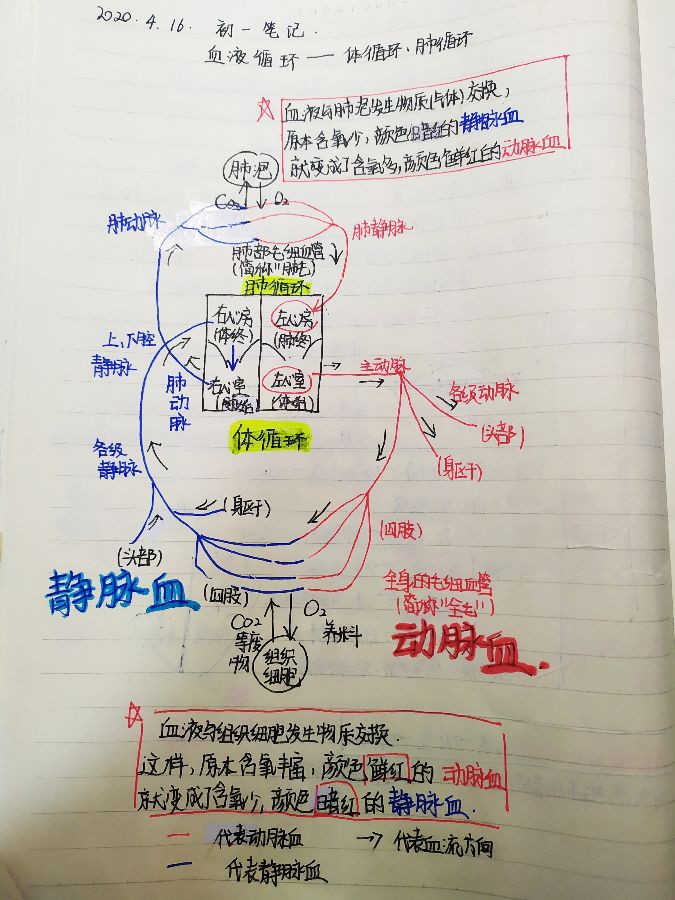 2020.4.16. 初一笔记.
血液循环——体循环、肺循环
血液与肺泡发生物质(气体)交换,
原本含氧少,颜色暗红的静脉血
就变成了含氧多,颜色鲜红的动脉血
肺泡
CO2 O2
肺动脉
肺静脉
肺部毛细血管
(简称"肺毛")
肺循环
右心房
(体终)
左心房
(肺终)
上、下腔
静脉
肺动脉
右心室
左心室
(体始)
主动脉
各级动脉
(头部)
(身区干)
体循环
各级
静脉
(身区干)
(头部)
(四肢)
(四肢)
静脉血
全身的毛细血管
(简称"全毛")
动脉血
CO2
等废
物
O2
养料
组织
细胞
血液与组织细胞发生物质交换.
这样,原本含氧丰富,颜色鲜红的动脉血
就变成了含氧少,颜色暗红的静脉血.
— 代表动脉血
→ 代表血流方向
— 代表静脉血